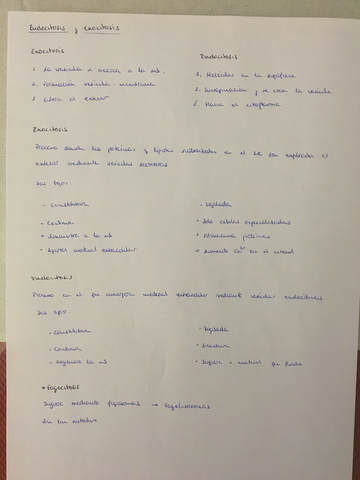 Endocitosis y Exocitosis
Exocitosis
1. La vesícula se acerca a la mb.
2. Formación vesícula - membrana
3. Libera al exterior
Endocitosis
1. Moléculas en la superficie
2. Invaginación y se crea la vesícula
3. Hacia el citoplasma
Exocitosis
Proceso donde las proteínas y lípidos sintetizados en el RE son expulsados al
exterior mediante vesículas secretoras
Dos tipos:
- Constitutiva
- Continua
- a la mb
- Aportar material extracelular
- Regulada
- Solo células especializadas
- Almacena proteínas
- Aumento Ca²⁺ en el citosol
Endocitosis
Proceso en el que incorpora material extracelular mediante vesículas endocíticas
Dos tipos
- Constitutiva
- Continua
- la mb
- Regulada
- Selectiva
- Ingiere + material que fluido
* Fagocitosis
Ingiere mediante fagosomas → fagolisosomas